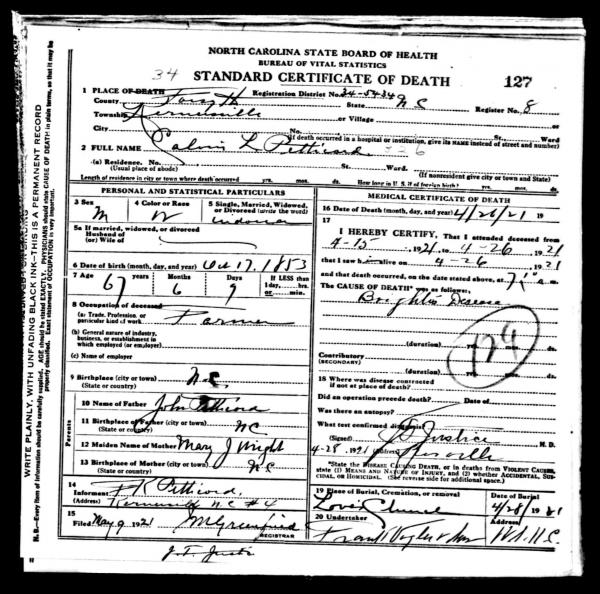 NORTH CAROLINA STATE BOARD OF HEALTH
BUREAU OF VITAL STATISTICS
34 STANDARD CERTIFICATE OF DEATH 127
1 PLACE OF DEATH Registration District No. 34-5434
County Forsyth State N C Register No. 8
Township Kernersville or Village
City No. St. Ward
(If death occurred in a hospital or institution, give its NAME instead of street and number)
2 FULL NAME Calvin L Petticord
(a) Residence. No. St. Ward
(Usual place of abode) (If nonresident give city or town and State)
Length of residence in city or town where death occurred yrs. mos. ds. How long in U. S. if of foreign birth? yrs. mos. ds.
PERSONAL AND STATISTICAL PARTICULARS
3 Sex 4 Color or Race 5 Single, Married, Widowed, or Divorced (write the word)
M W
5a If married, widowed, or divorced
Husband of
(or) Wife of
6 Date of birth (month, day, and year) Oct 17, 1853
7 Age Years Months Days If LESS than
67 6 9 1 day, hrs.
or min.
8 Occupation of deceased
(a) Trade, Profession, or particular kind of work Farmer
(b) General nature of industry, business, or establishment in which employed (or employer)
(c) Name of employer
9 Birthplace (city or town) N.C.
(State or country)
Parents
10 Name of Father John Petticord
11 Birthplace of Father (city or town) NC
(State or country)
12 Maiden Name of Mother Mary J Wright
13 Birthplace of Mother (city or town) N C
(State or country)
14
Informant Petticord
(Address) Kernersville N C #4
15
Filed May 9, 1921 REGISTRAR
MEDICAL CERTIFICATE OF DEATH
16 Date of Death (month, day, and year) 4/26/21 19
17
I HEREBY CERTIFY, That I attended deceased from
4-15, 1921, to 4-26, 1921
that I saw him alive on 4-26, 1921
and that death occurred, on the date stated above, at 7 a m.
The CAUSE OF DEATH* was as follows:
Bright's Disease
129
(duration) yrs. mos. ds.
Contributory
(SECONDARY)
(duration) yrs. mos. ds.
18 Where was disease contracted
if not at place of death?
Did an operation precede death? Date of
Was there an autopsy?
What test confirmed diagnosis?
(Signed) Justice M. D.
4-28, 1921 (Address)
*State the DISEASE CAUSING DEATH, or in deaths from VIOLENT CAUSES, state (1) MEANS AND NATURE OF INJURY, and (2) whether ACCIDENTAL, SUICIDAL, or HOMICIDAL. (See reverse side for additional space.)
19 Place of Burial, Cremation, or removal Date of Burial
Love's Church 4/28 1921
20 Undertaker Address
Frank Vogler & Son W.S.N.C.
WRITE PLAINLY, WITH UNFADING BLACK INK—THIS IS A PERMANENT RECORD
N. B.—Every item of information should be carefully supplied. AGE should be stated EXACTLY. PHYSICIANS should state CAUSE OF DEATH in plain terms, so that it may be properly classified. Exact statement of OCCUPATION is very important.